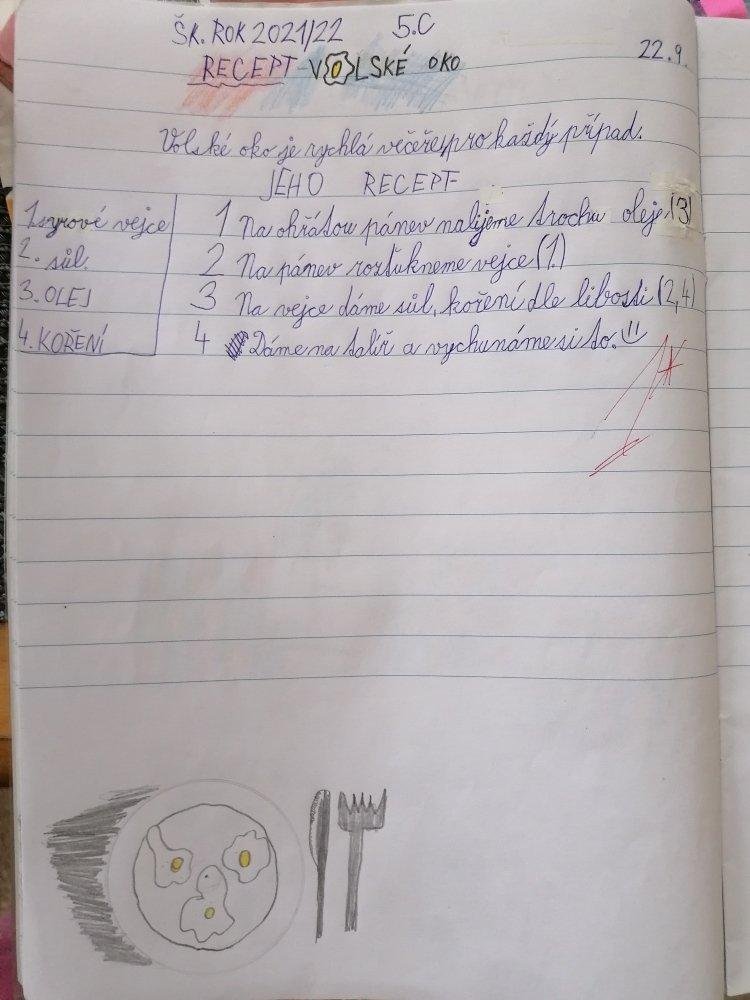 ŠK. ROK 2021/22 5.C
22.9.
RECEPT-VOLSKÉ OKO
Volské oko je rychlá večeře, pro každý případ.
JEHO RECEPT
1. syrové vejce
2. sůl
3. OLEJ
4. KOŘENÍ
1 Na ohřátou pánev nalijeme trochu oleje (3)
2 Na pánev rozťukneme vejce (1.)
3 Na vejce dáme sůl, koření dle libosti (2,4)
4 Dáme na talíř a vychunáme si to.
1*